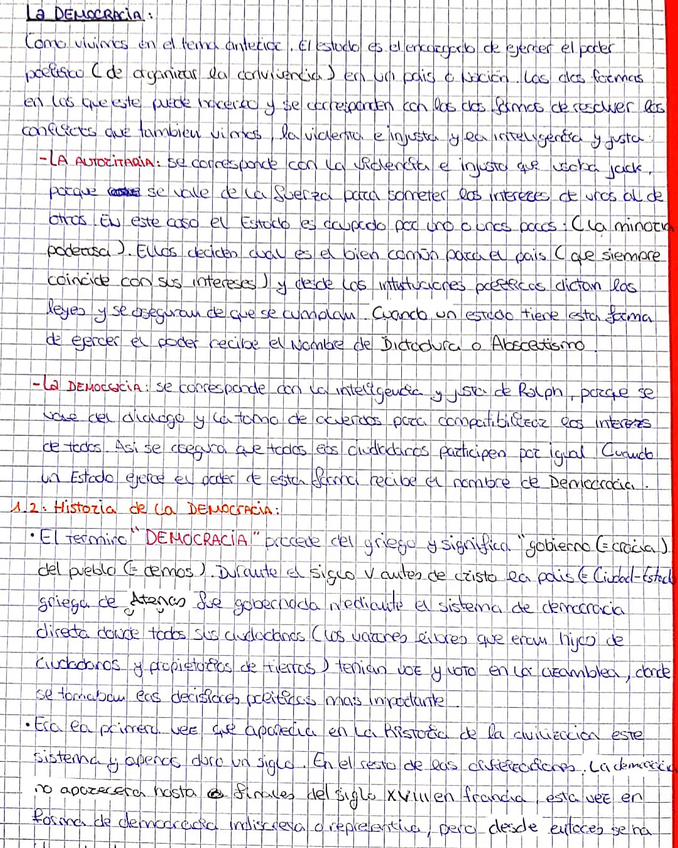 La DEMOCRACIA:
Como vivimos en el tema anterior. El estado es el encargado de ejercer el poder
político (de organizar la convivencia) en un país o Nación. Las dos formas
en las que este puede hacerlo y se corresponden con las dos formas de resolver los
conflictos que tambien vimos, la violenta e injusta y la inteligente y justa.
-LA AUTORITARIA: se corresponde con la violenta e injusta que usaba Jack,
porque se vale de la fuerza para someter los intereses de unos al de
otros. En este caso el Estado es ocupado por uno o unos pocos: (la minoria
poderosa). Ellos deciden cual es el bien común para el pais (que siempre
coincide con sus intereses) y desde las intituciones politicas dictan las
leyes y se aseguran de que se cumplan. Cuando un estado tiene esta forma
de ejercer el poder recibe el Nombre de Dictadura o Absolutismo.
-La DEMOCRACIA: se corresponde con la inteligencia y justa de Ralph, porque se
vale del dialogo y la toma de acuerdos para compatibilizar los intereses
de todos. Asi se asegura que todos los ciudadanos participen por igual Cuando
un Estado ejerce el poder de esta forma recibe el nombre de Democracia.
1.2. Historia de la DEMOCRACIA:
• El termino "DEMOCRACIA" procede del griego y significa "gobierno (=cracia)
del pueblo (=demos). Durante el siglo V antes de cristo la pais (=Ciudad-Estado
griega de Atenas fue gobernada mediante el sistema de democracia
directa donde todos sus ciudadanos (los varones libres que eran hijos de
ciudadanos y propietarios de tierras) tenian voz y voto en la asamblea, donde
se tomaban las decisiones politicas mas importante.
• Era la primera vez que aparecia en la Historia de la civilizacion este
sistema y apenas duro un siglo. En el resto de las civilizaciones. La democracia
no aparecera hasta finales del siglo XVIII en francia, esta vez en
forma de democracia indirecta o representiva, pero desde entoces se ha